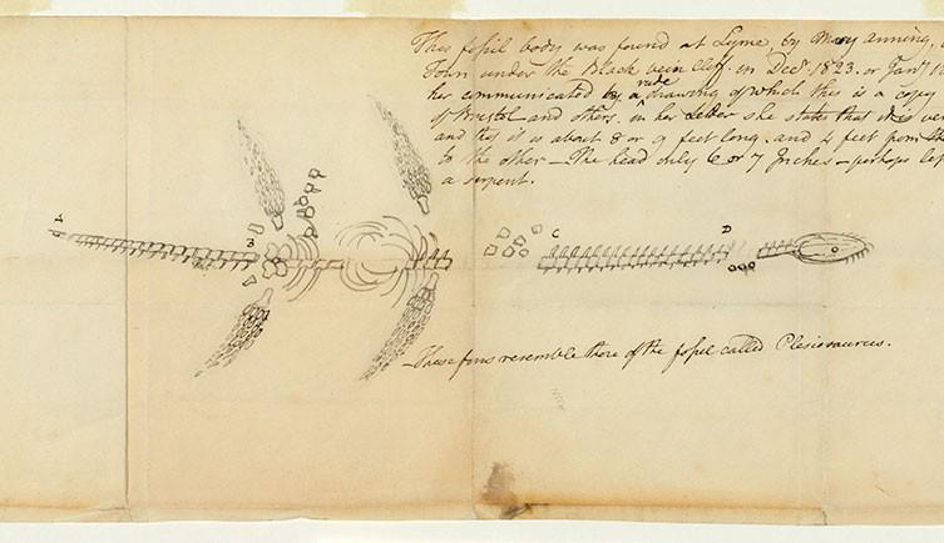 This fossil body was found at Lyme, by Mary Anning,
Town under the Black vein Cliff. in Decr. 1823. or Jany 1
her communicated by a rude drawing of which this is a copy
of Bristol and others. in her Letter she states that it is ver
and that it is about 8 or 9 feet long. and 4 feet from
to the other — The head only 6 or 7 Inches — perhaps
a serpent.
A
B
C
D
— These fins resemble those of the fossil called Plesiosaurus.